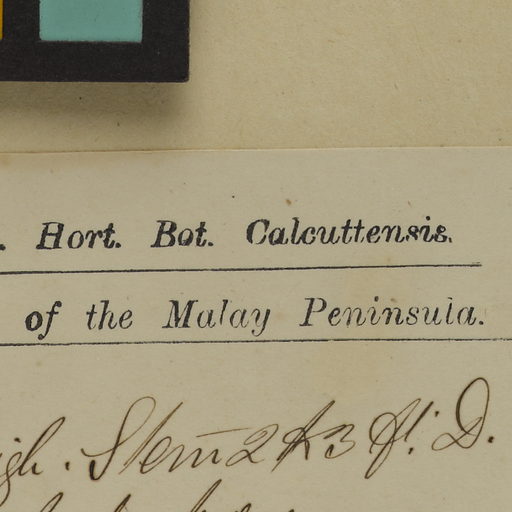 . Hort. Bot. Calcuttensis.
of the Malay Peninsula.
igh. Stem 2 & 3 ft. D.